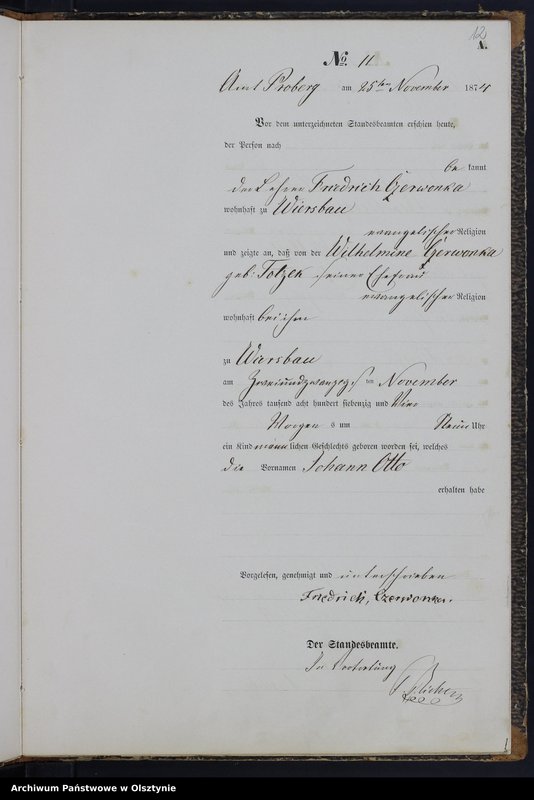 12
A.
No. 11
Amt Proberg am 25ten November 1874
Vor dem unterzeichneten Standesbeamten erschien heute,
der Person nach
be kannt
der Lehrer Friedrich Czerwonka
wohnhaft zu Wiersbau
evangelischer Religion
und zeigte an, daß von der Wilhelmine Czerwonka
geb. Tolzek seiner Ehefrau
evangelischer Religion
wohnhaft bei ihm
zu Wiersbau
am Zweiundzwanzigst ten November
des Jahres tausend acht hundert siebenzig und Vier
Morgen s um Neun Uhr
ein Kind männ lichen Geschlechts geboren worden sei, welches
die Vornamen Johann Otto
erhalten habe
Vorgelesen, genehmigt und unterschrieben
Friedrich Czerwonka.
Der Standesbeamte.
In Vertretung
Archiwum Państwowe w Olsztynie